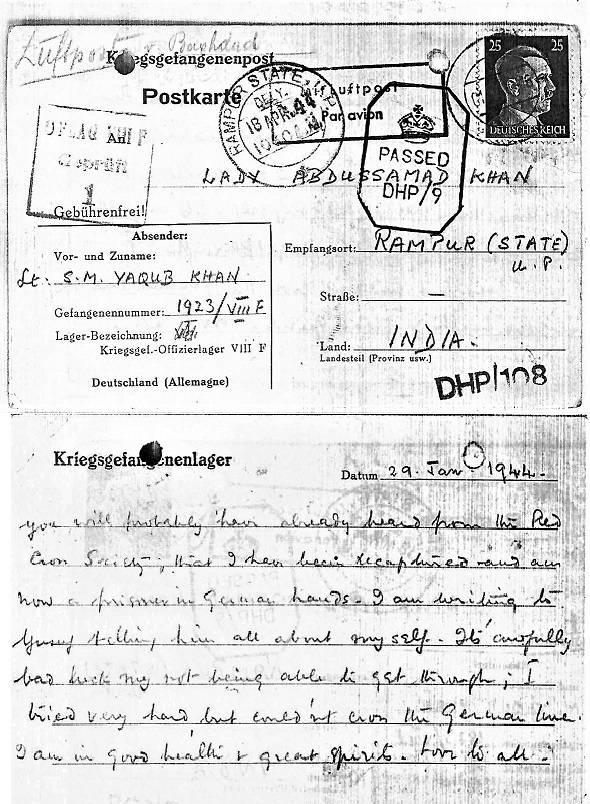 Luftpost v. Baghdad
Kriegsgefangenenpost
25 25
DEUTSCHES REICH
Postkarte
Mit Luftpost
Par avion
RAMPUR STATE, U.P.
DELY.
18 APR. 44
OFLAG VIII F
Geprüft
1
An
PASSED
DHP/9
LADY ABDUSSAMAD KHAN
Gebührenfrei!
Absender:
Vor- und Zuname:
Lt. S.M. YAQUB KHAN
Gefangenennummer: 1923/VIII F
Lager-Bezeichnung:
Kriegsgef.-Offizierlager VIII F
Deutschland (Allemagne)
Empfangsort: RAMPUR (STATE)
U.P.
Straße: —
Land: INDIA.
Landesteil (Provinz usw.)
DHP/108
Kriegsgefangenenlager
Datum 29. Jan. 1944.
you will probably have already heard from the Red
Cross Society, that I have been recaptured and am
now a prisoner in German hands. I am writing to
Yusuf telling him all about myself. Its awfully
bad luck my not being able to get through; I
tried very hard but could'nt cross the German line.
I am in good health & great spirits. Love to all.